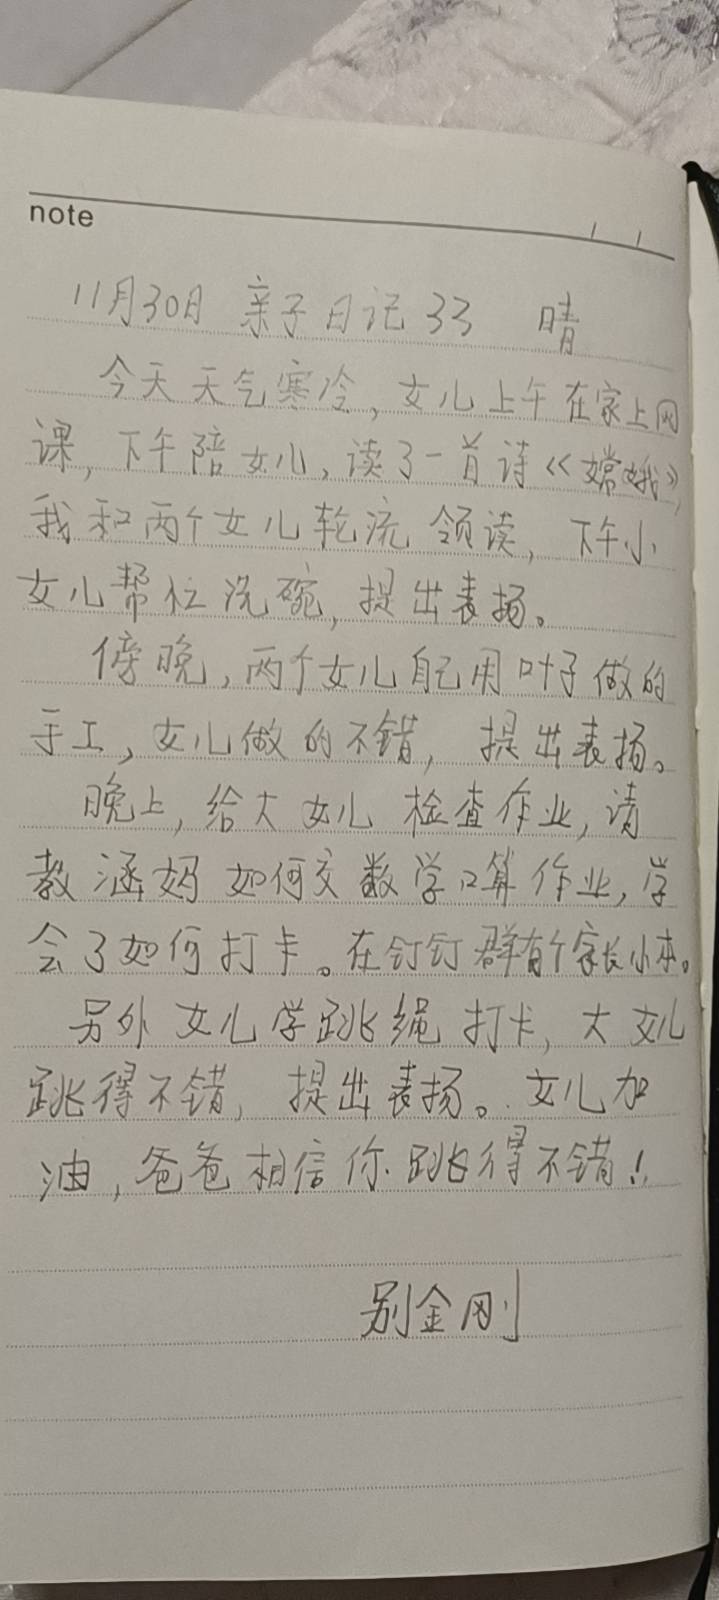 note
11月30日 亲子日记33 晴
今天天气寒冷,女儿上午在家上网
课,下午陪女儿,读了一首诗《嫦娥》,
我和两个女儿轮流领读,下午小
女儿帮忙洗碗,提出表扬。
傍晚,两个女儿自己用叶子做的
手工,女儿做的不错,提出表扬。
晚上,给大女儿检查作业,请
教涵妈如何交数学口算作业,学
会了如何打卡。在钉钉群有个家长小本。
另外女儿学跳绳打卡,大女儿
跳得不错,提出表扬。女儿加
油,爸爸相信你跳得不错!
别金刚